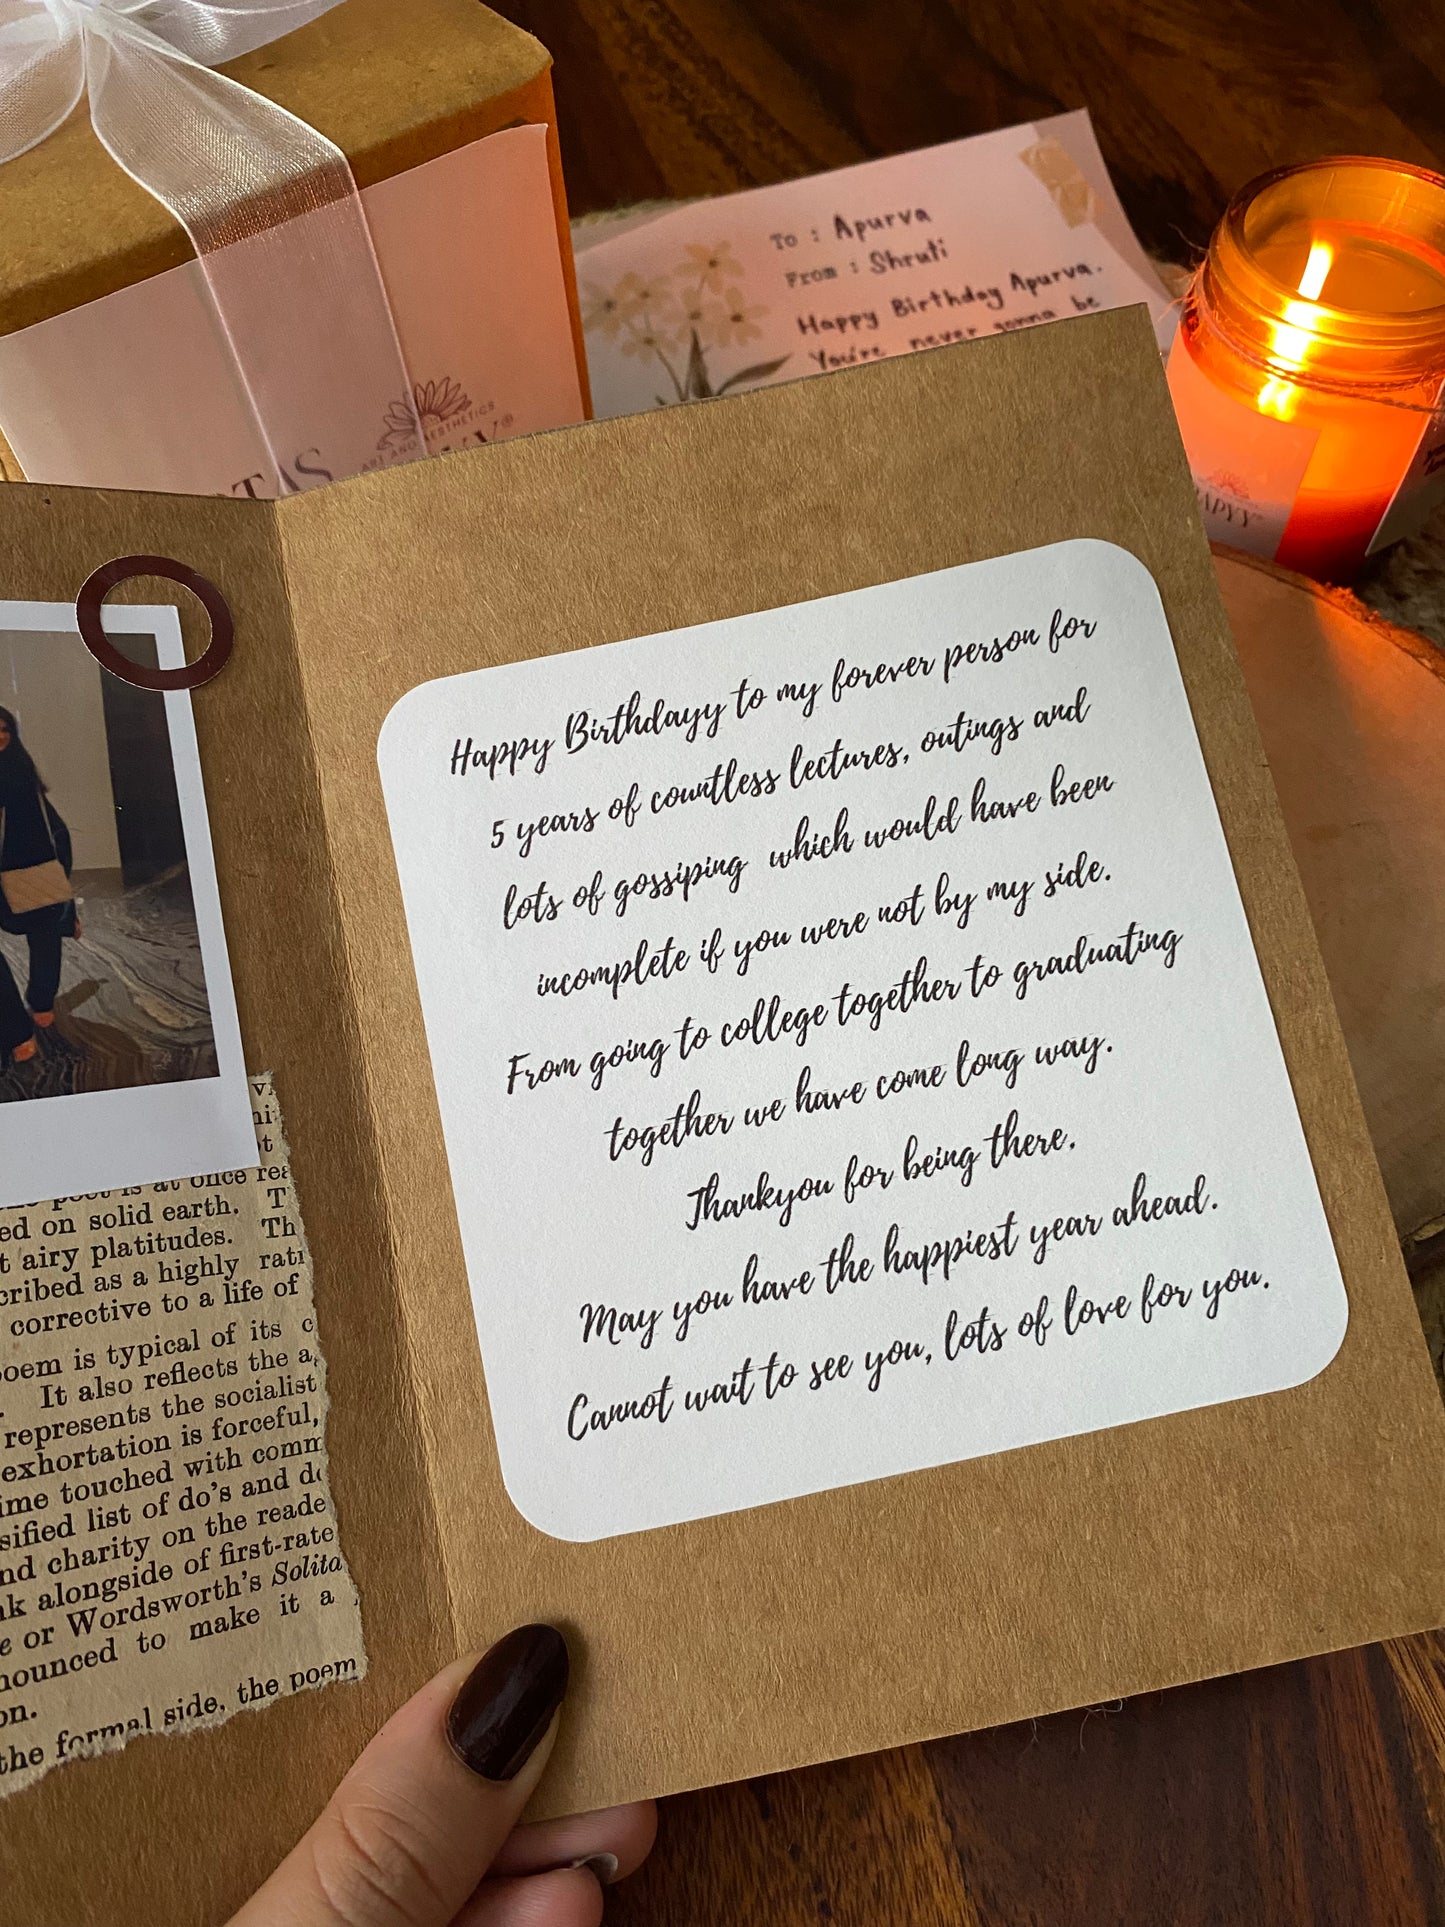 To : Apurva
From : Shruti
Happy Birthday Apurva.
You're never gonna be
ART AND AESTHETICS
Happy Birthdayy to my forever person for
5 years of countless lectures, outings and
lots of gossiping which would have been
incomplete if you were not by my side.
From going to college together to graduating
together we have come long way.
Thankyou for being there.
May you have the happiest year ahead.
Cannot wait to see you, lots of love for you.
poet is at once
ed on solid earth.
airy platitudes.
cribed as a highly
corrective to a life of
poem is typical of its
It also reflects the
represents the socialist
exhortation is forceful,
touched with
list of do's and
and charity on the
alongside of first-rate
or Wordsworth's
to make it a
on.
the formal side, the poem